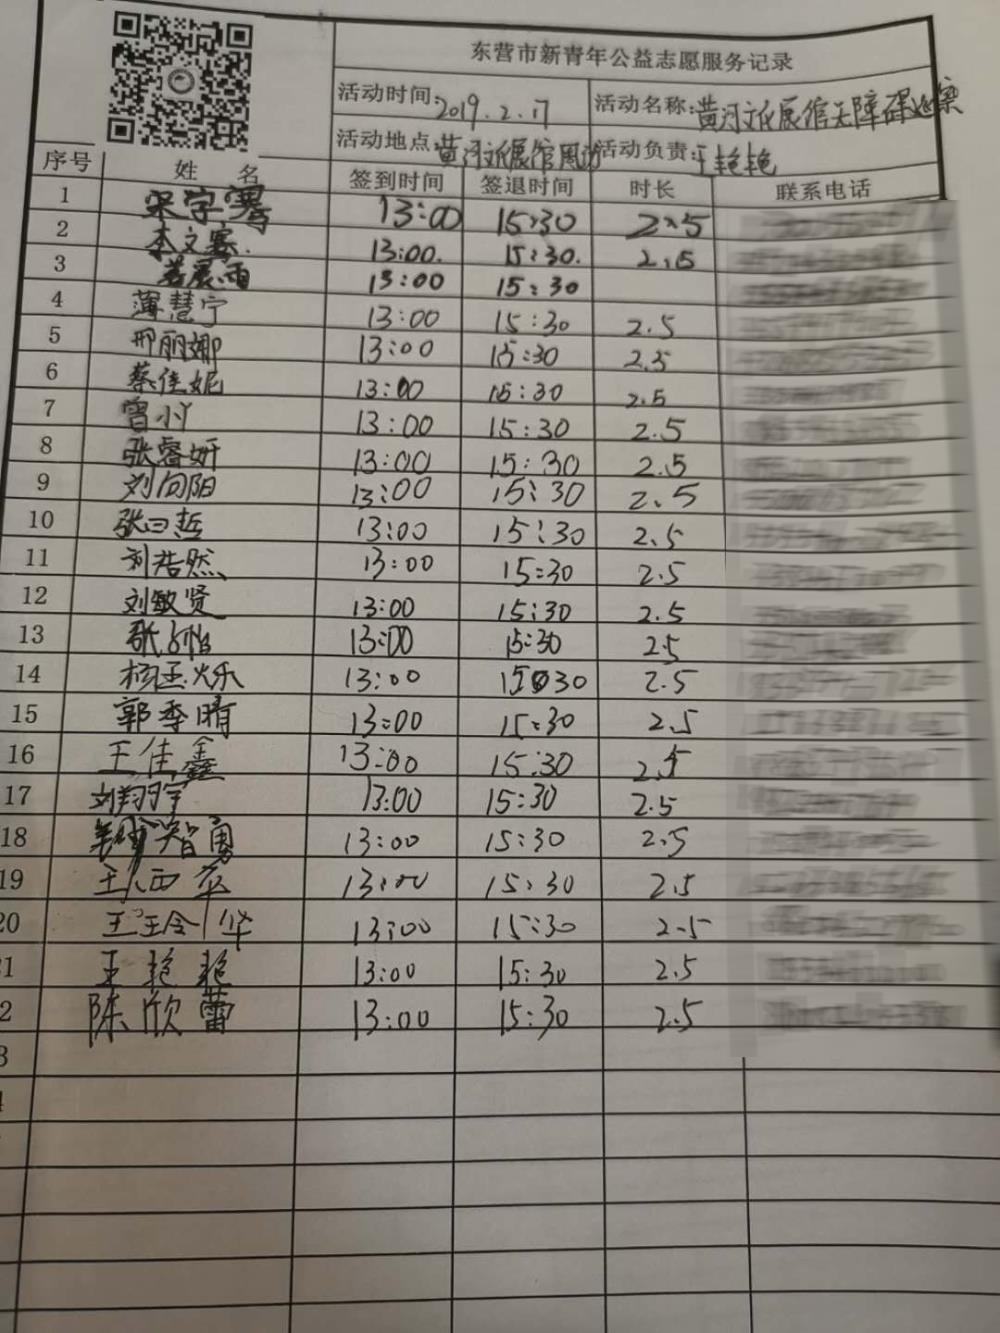 东营市新青年公益志愿服务记录
活动时间:2019.2.17 活动名称:黄河文化展馆无障碍
活动地点:黄河文化展馆周边 活动负责:王艳艳
序号 姓 名 签到时间 签退时间 时长 联系电话
1 13:00 15:30 2.5
2 李文骞. 13:00. 15:30. 2.5
3 晨雨 13:00 15:30
4 薄慧宁 13:00 15:30 2.5
5 邢丽娜 13:00 15:30 2.5
6 蔡佳妮 13:00 15:30 2.5
7 曾小丫 13:00 15:30 2.5
8 张睿妍 13:00 15:30 2.5
9 刘向阳 13:00 15:30 2.5
10 张曰哲 13:00 15:30 2.5
11 刘浩然 13:00 15:30 2.5
12 刘敏贤 13:00 15:30 2.5
13 张子怡 13:00 15:30 2.5
14 杨玉烁 13:00 15:30 2.5
15 郭季晴 13:00 15:30 2.5
16 王佳鑫 13:00 15:30 2.5
17 刘翔宇 13:00 15:30 2.5
18 智勇 13:00 15:30 2.5
19 王 13:00 15:30 2.5
20 王玲华 13:00 15:30 2.5
1 王艳艳 13:00 15:30 2.5
2 陈欣蕾 13:00 15:30 2.5
3
4